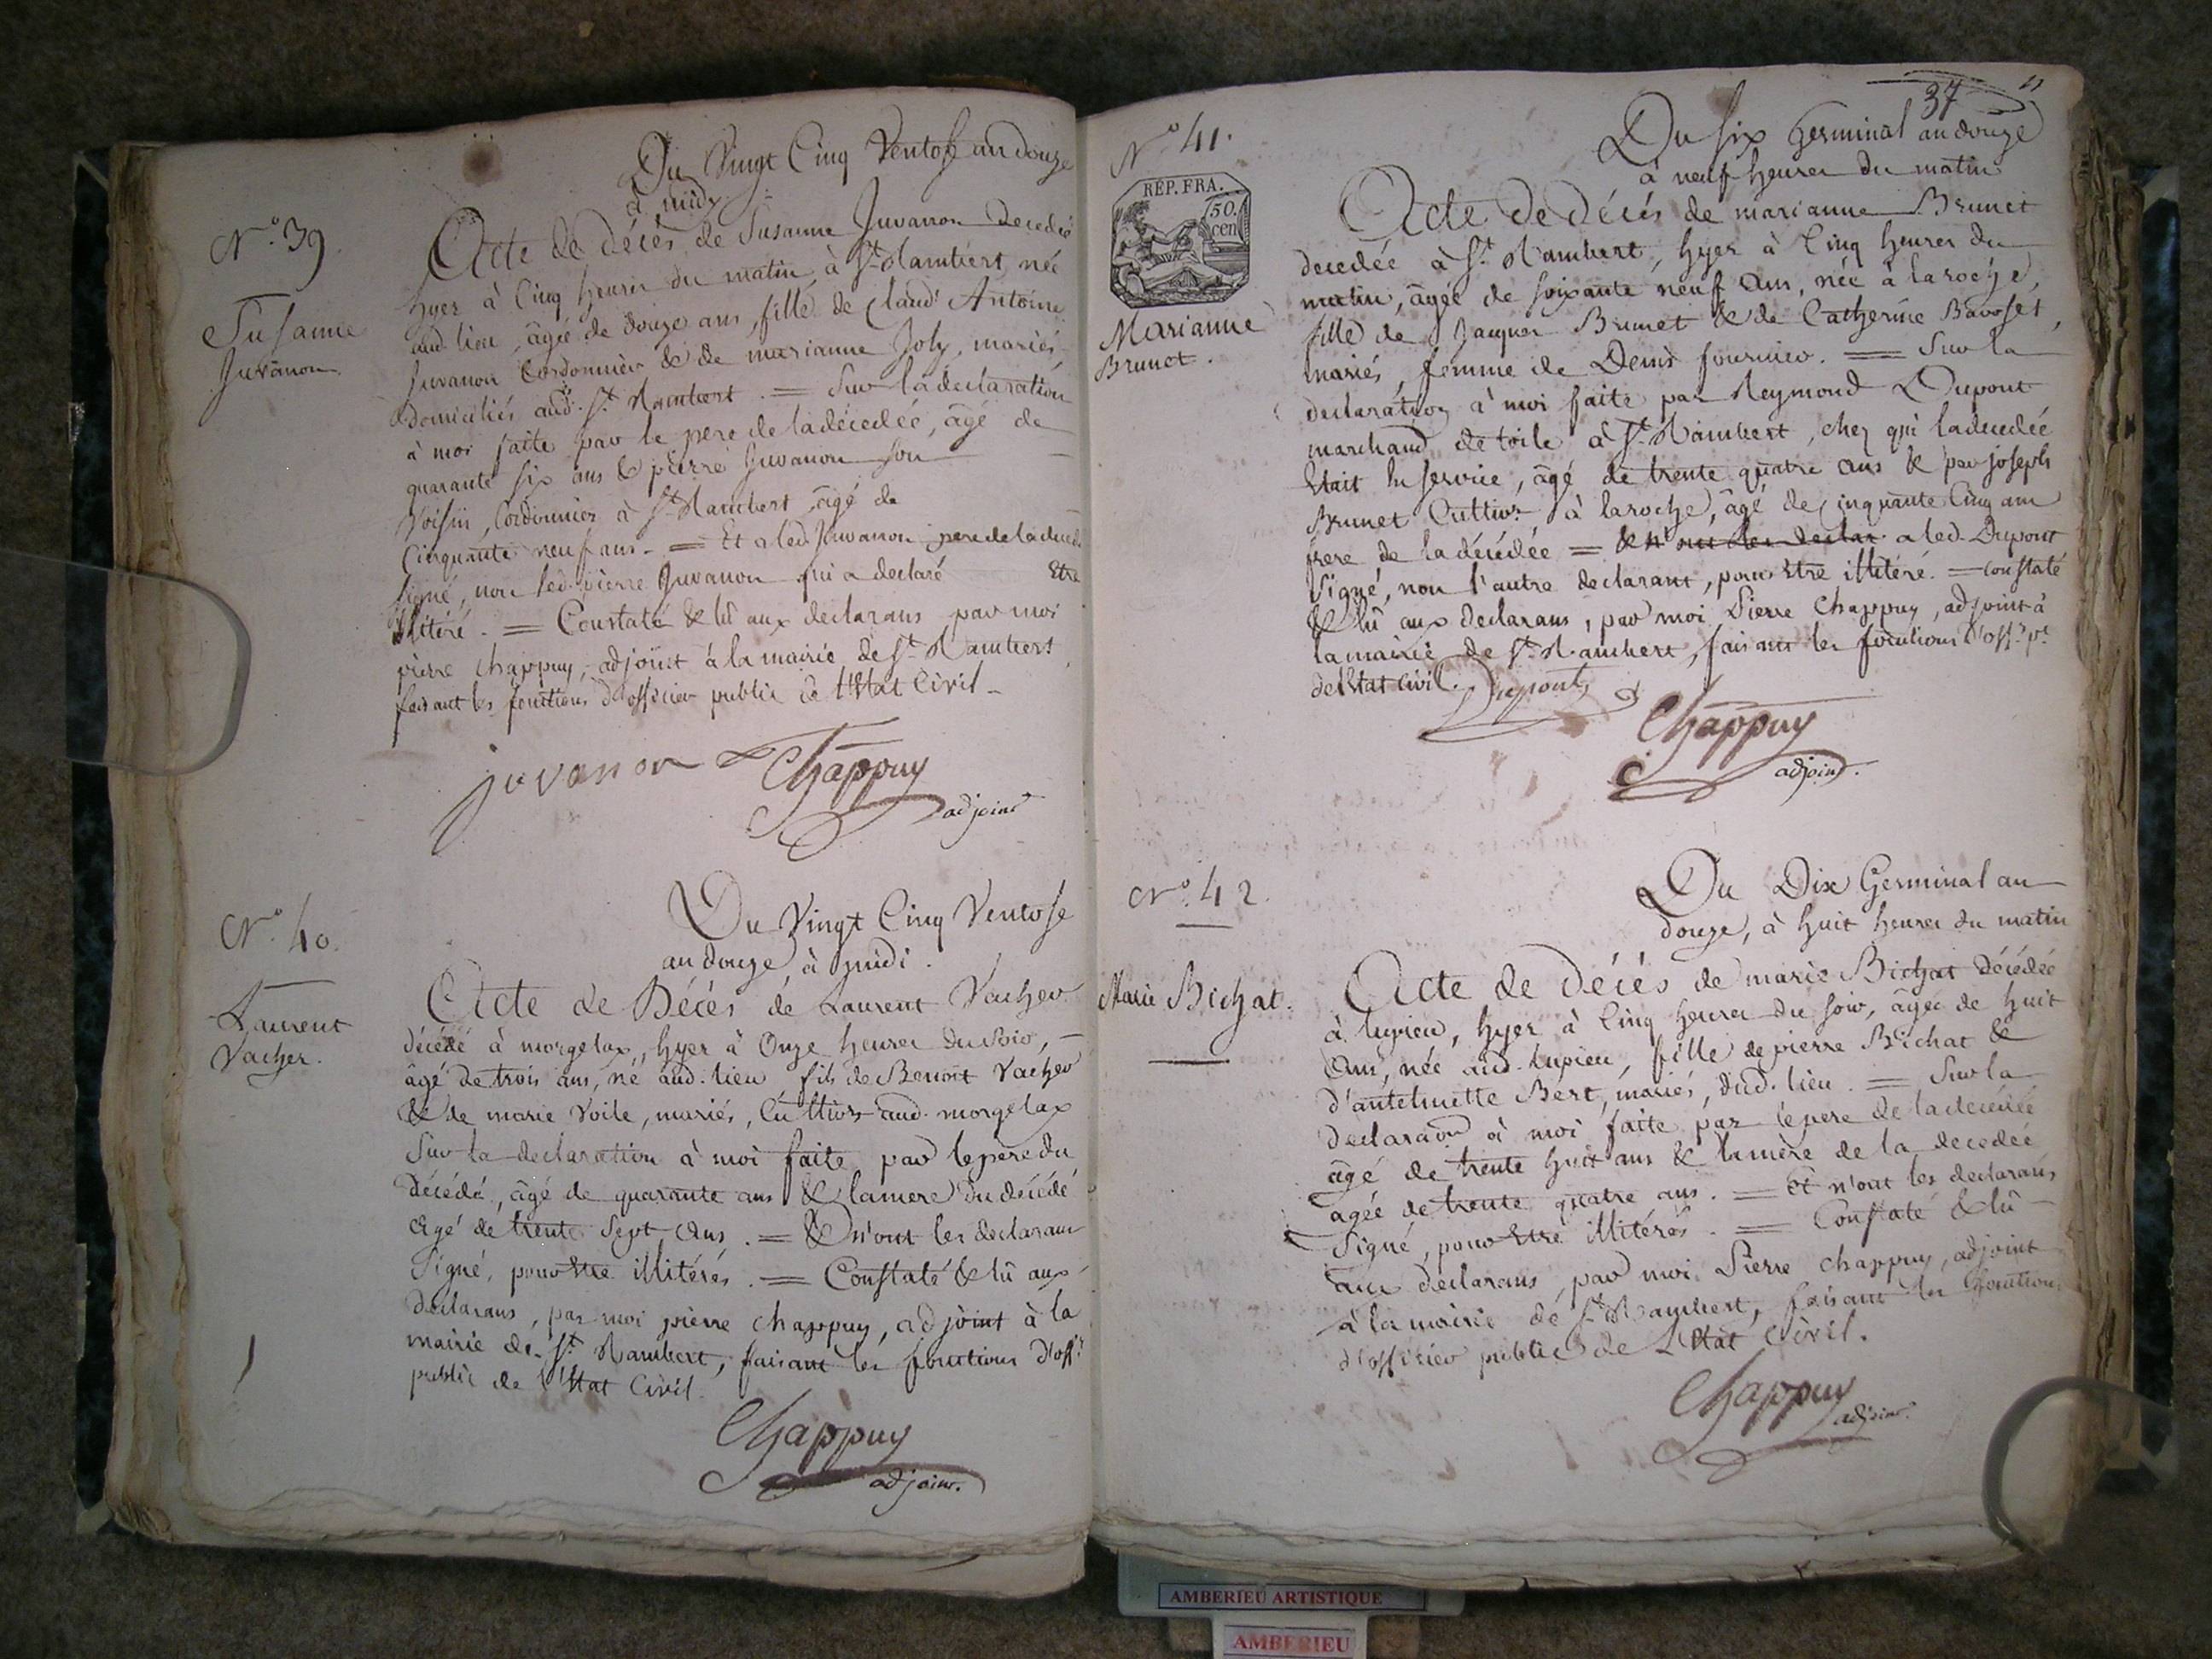 N.º 39.
Susanne
Juvanon.
Du Vingt Cinq Ventose an douze
à midy
Acte de décès de Susanne Juvanon decedée
hyer à Cinq heures du matin, à St. Rambert, née
aud. lieu, âgée de douze ans, fille de Claude Antoine
Juvanon Cordonnier & de marianne Joly, mariés
domiciliés aud. St. Rambert. = Sur la declaration
à moi faite par le pere de la décedée, âgé de
quarante six ans & pierre Juvanon son
Voisin, Cordonnier à St. Rambert, âgé de
Cinquante neuf ans. = Et a led. Juvanon pere de la décedée
signé, non led. pierre Juvanon qui a declaré Etre
illitéré. = Constaté & lû aux declarans par moi
pierre Chappuy, adjoint à la mairie de St. Rambert,
faisant les fonctions d'officier public de l'Etat Civil.
juvanon Chappuy
adjoint
N.º 40.
Laurent
Vacher.
Du Vingt Cinq Ventose
an douze, à midi.
Acte de Décés de Laurent Vacher
décédé à morgelax, hyer à Onze heures du Soir,
âgé de trois ans, né aud. lieu, fils de Benoit Vacher
& de marie Voile, mariés, Cultivrs aud. morgelax
Sur la declaration à moi faite par le pere du
décédé, âgé de quarante ans & la mere du décédé
âgé de trente Sept ans. = & n'ont les declarans
Signé, pour Etre illitérés. = Constaté & lû aux
declarans, par moi pierre Chappuy, adjoint à la
mairie de St. Rambert, faisant les fonctions d'offr.
public de l'Etat Civil.
Chappuy
adjoint.
37
N.º 41.
RÉP. FRA.
50.
cen
Marianne
Brunet.
Du Six Germinal an douze
à neuf heures du matin
Acte de décés de marianne Brunet
decedée à St. Rambert, hyer à Cinq heures du
matin, âgée de soixante neuf ans, née à la roche,
fille de Jaques Brunet & de Catherine Bavoset,
mariés, femme de Denis fournier. = Sur la
declaration à moi faite par Reymond Dupont
marchand de toile à St. Rambert, chez qui la decedée
Etait En service, âgé de trente quatre ans & par joseph
Brunet Cultivr. à la roche, âgé de Cinquante Cinq ans
frere de la décédée = & n'ont les declar. a led. Dupont
signé, non l'autre declarant, pour Etre illitéré. = Constaté
& lû aux declarans, par moi Pierre Chappuy, adjoint à
la mairie de St. Rambert, faisant les fonctions d'offr. pc.
de l'Etat civil. Dupont
Chappuy
adjoint.
N.º 42.
Marie Bichat.
Du Dix Germinal an
douze, à huit heures du matin
Acte de décés de marie Bichat décédée
à lupieu, hyer à Cinq heures du soir, âgée de huit
Ans, née aud. lupieu, fille de pierre Bichat &
d'antelmette Bert, mariés, dud. lieu. = Sur la
declaraon à moi faite par le pere de la decedée
âgé de trente huit ans & la mère de la decedée
agée de trente quatre ans. = Et n'ont les declarans
Signé, pour Etre illitérés. = Constaté & lû
aux declarans, par moi Pierre Chappuy, adjoint
à la mairie de St. Rambert, faisant les fonctions
d'officier public de l'Etat Civil.
Chappuy
adjoint.
AMBERIEU ARTISTIQUE
AMBERIEU